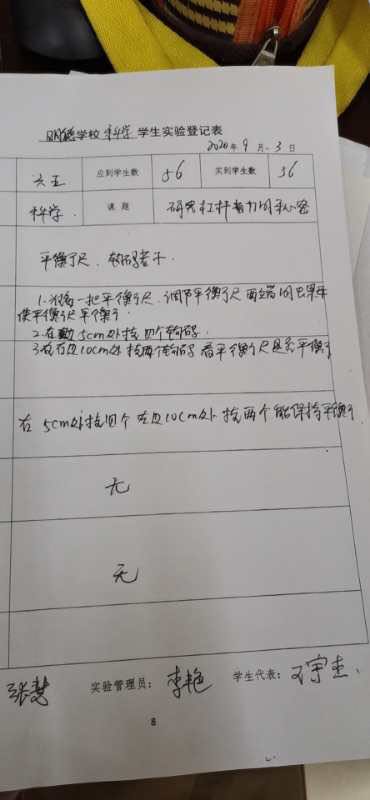 明德学校 科学 学生实验登记表
2020年9月3日
六五 应到学生数 56 实到学生数 56
科学 课题 研究杠杆省力的秘密
平衡尺、钩码若干.
1.准备一把平衡尺,调节平衡尺两端的
使平衡尺平衡
2.在 5cm处挂四个钩码.
3.在右边10cm处挂两个钩码 看平衡尺是否平衡
在5cm处挂四个 右边10cm处挂两个能保持平衡
无
无
张梦 实验管理员: 李艳 学生代表: 石宇杰.
8